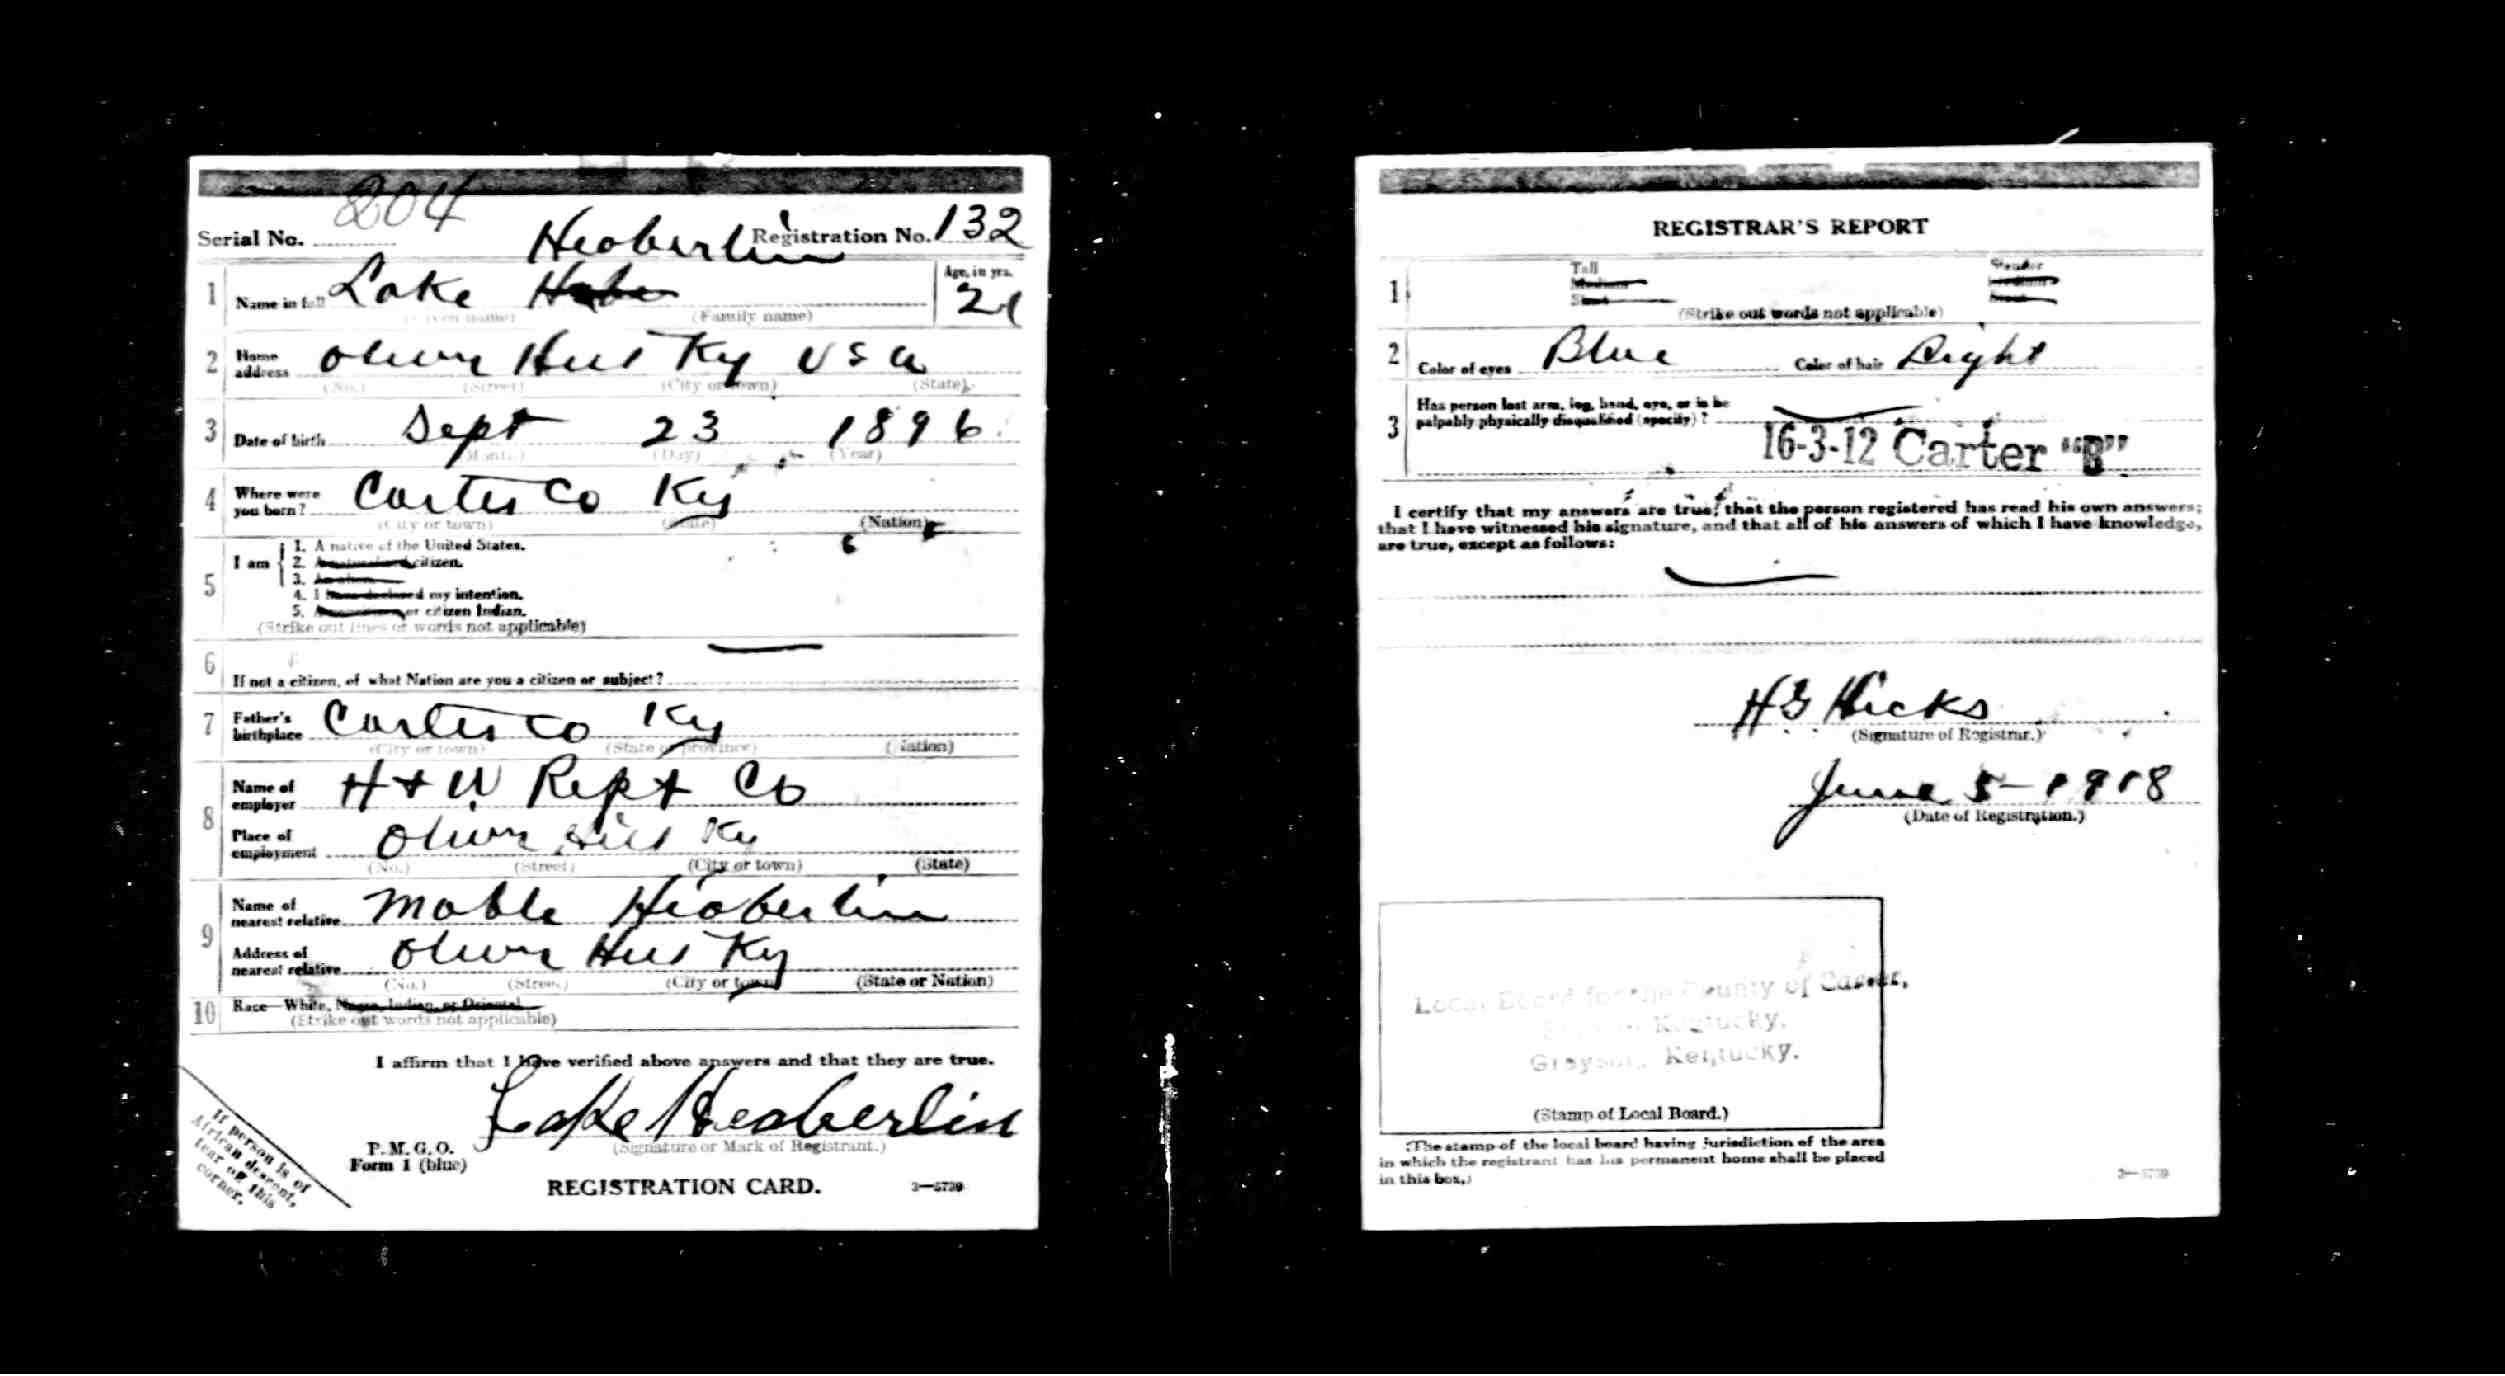 204
Serial No. Registration No. 132
Heaberlin
1 Name in full Lake Age, in yrs. 21
(Given name) (Family name)
2 Home address Olive Hill Ky U S A
(No.) (Street) (City or town) (State)
3 Date of birth Sept 23 1896
(Month) (Day) (Year)
4 Where were you born? Carter Co Ky
(City or town) (State) (Nation)
5 I am
1. A native of the United States.
2. A naturalized citizen.
3. An alien.
4. I have declared my intention.
5. A or citizen Indian.
(Strike out lines or words not applicable)
6 If not a citizen, of what Nation are you a citizen or subject?
7 Father's birthplace Carter Co Ky
(City or town) (State or province) (Nation)
8 Name of employer H + W Co
Place of employment Olive Hill Ky
(No.) (Street) (City or town) (State)
9 Name of nearest relative Mable Heaberlin
Address of nearest relative Olive Hill Ky
(No.) (Street) (City or town) (State or Nation)
10 Race—White, Negro, Indian, or Oriental
(Strike out words not applicable)
I affirm that I have verified above answers and that they are true.
Lake Heaberlin
(Signature or Mark of Registrant.)
P. M. G. O.
Form 1 (blue)
REGISTRATION CARD. 3—5739
If person is of
African descent,
tear off this
corner.
REGISTRAR'S REPORT
1 Tall Slender
Medium Medium
Short Stout
(Strike out words not applicable)
2 Color of eyes Blue Color of hair Light
3 Has person lost arm, leg, hand, eye, or is he
palpably physically disqualified (specify)?
16-3-12 Carter "B"
I certify that my answers are true; that the person registered has read his own answers;
that I have witnessed his signature, and that all of his answers of which I have knowledge,
are true, except as follows:
Hicks
(Signature of Registrar.)
June 5-1918
(Date of Registration.)
Local Board for the County of Carter,
Kentucky.
Grayson, Kentucky.
(Stamp of Local Board.)
(The stamp of the local board having jurisdiction of the area
in which the registrant has his permanent home shall be placed
in this box.)
3—5739